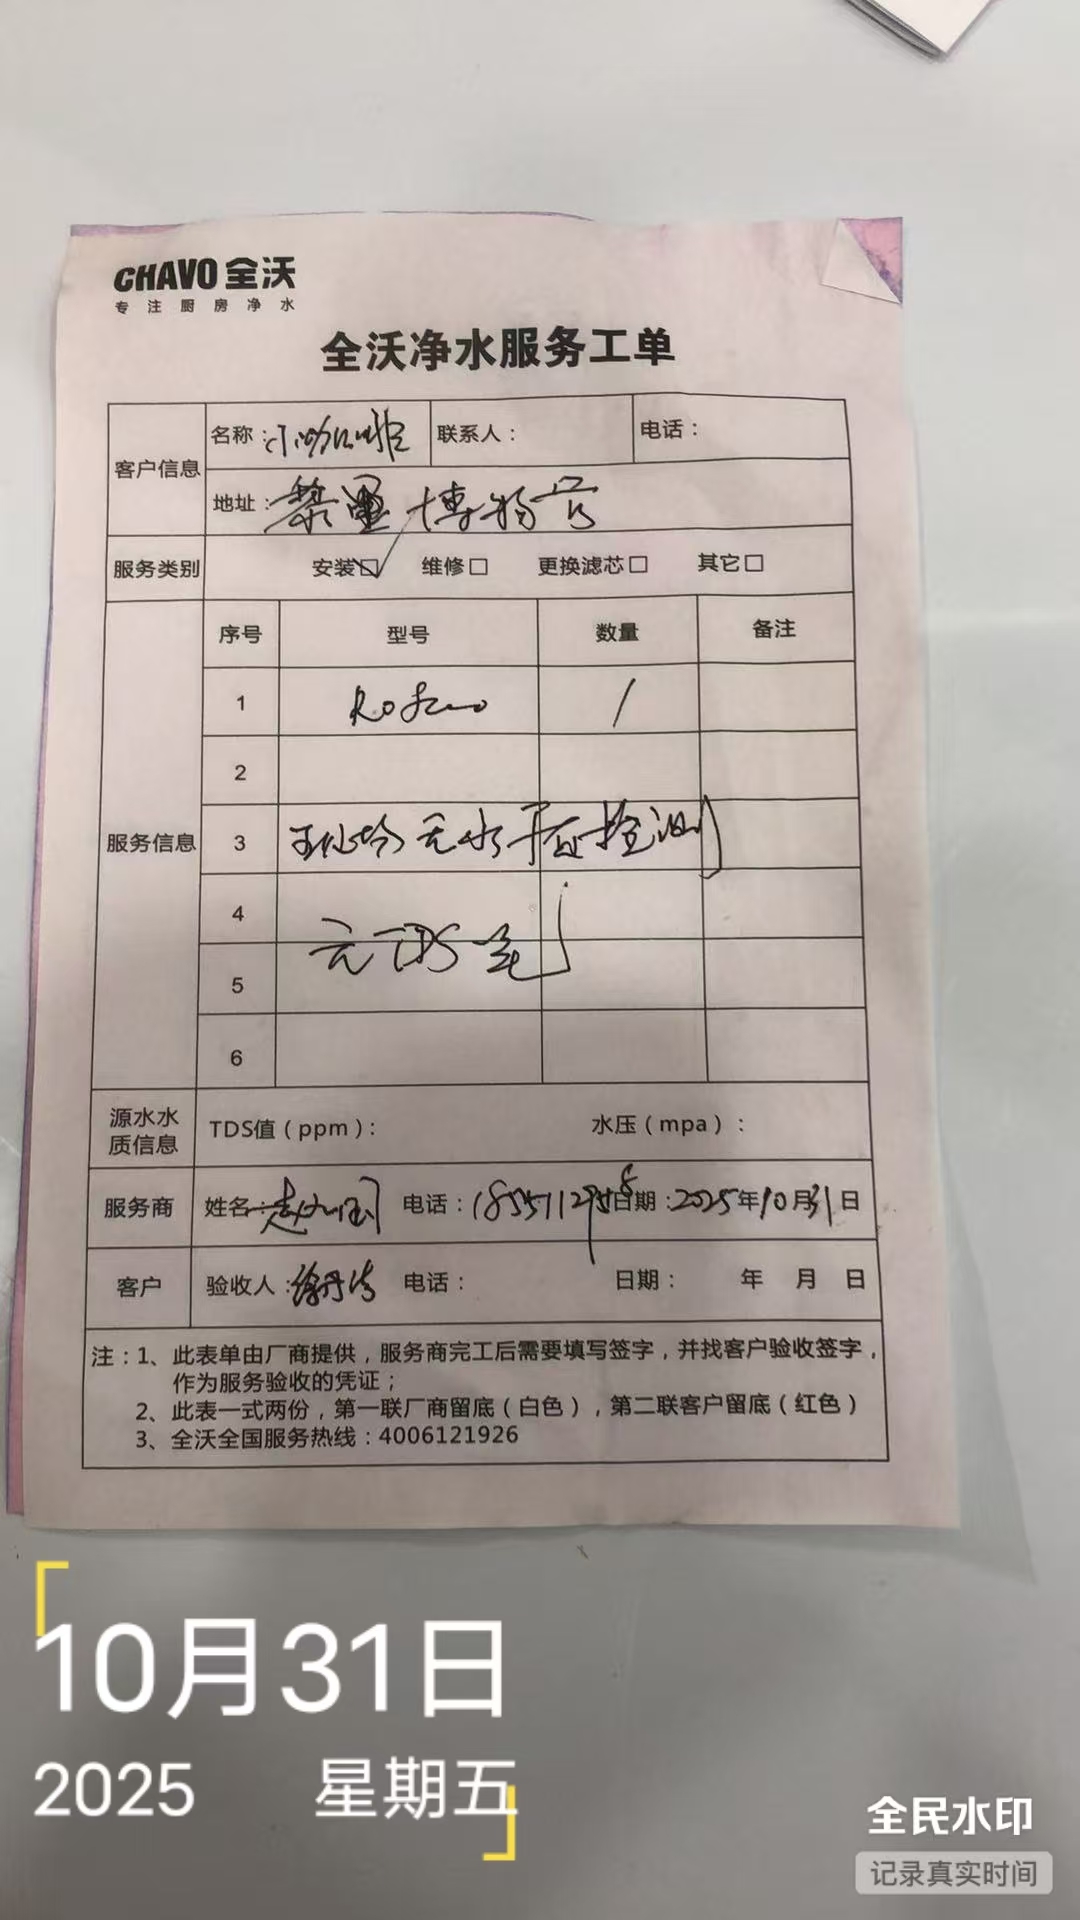 CHAVO 全沃
专注厨房净水
全沃净水服务工单
客户信息 名称：小咖啡 联系人： 电话：
地址：黎里博物馆
服务类别 安装☑ 维修□ 更换滤芯□ 其它□
服务信息 序号 型号 数量 备注
1 Ro 1
2
3 现场无水 检测
4
5
6
源水水质信息 TDS值（ppm）： 水压（mpa）：
服务商 姓名：赵 国 电话： 日期：2025年10月31日
客户 验收人：徐丹 电话： 日期： 年 月 日
注：1、此表单由厂商提供，服务商完工后需要填写签字，并找客户验收签字，
作为服务验收的凭证；
2、此表一式两份，第一联厂商留底（白色），第二联客户留底（红色）
3、全沃全国服务热线：4006121926
10月31日
2025 星期五
全民水印
记录真实时间